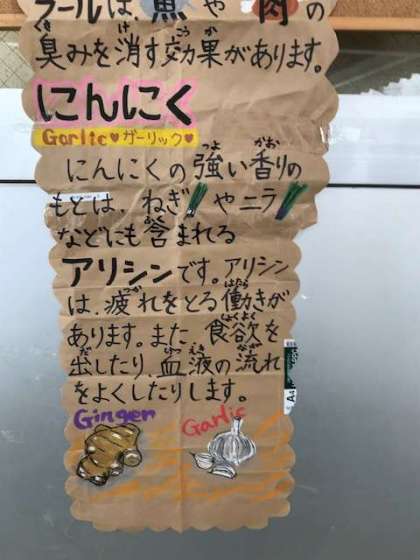 ラールは、魚や肉の
臭みを消す効果があります。
にんにく
Garlic♥ガーリック♥
にんにくの強い香りの
もとは、ねぎやニラ
などにも含まれる
アリシンです。アリシン
は、疲れをとる働きが
あります。また、食欲を
出したり、血液の流れ
をよくしたりします。
Ginger Garlic
A4